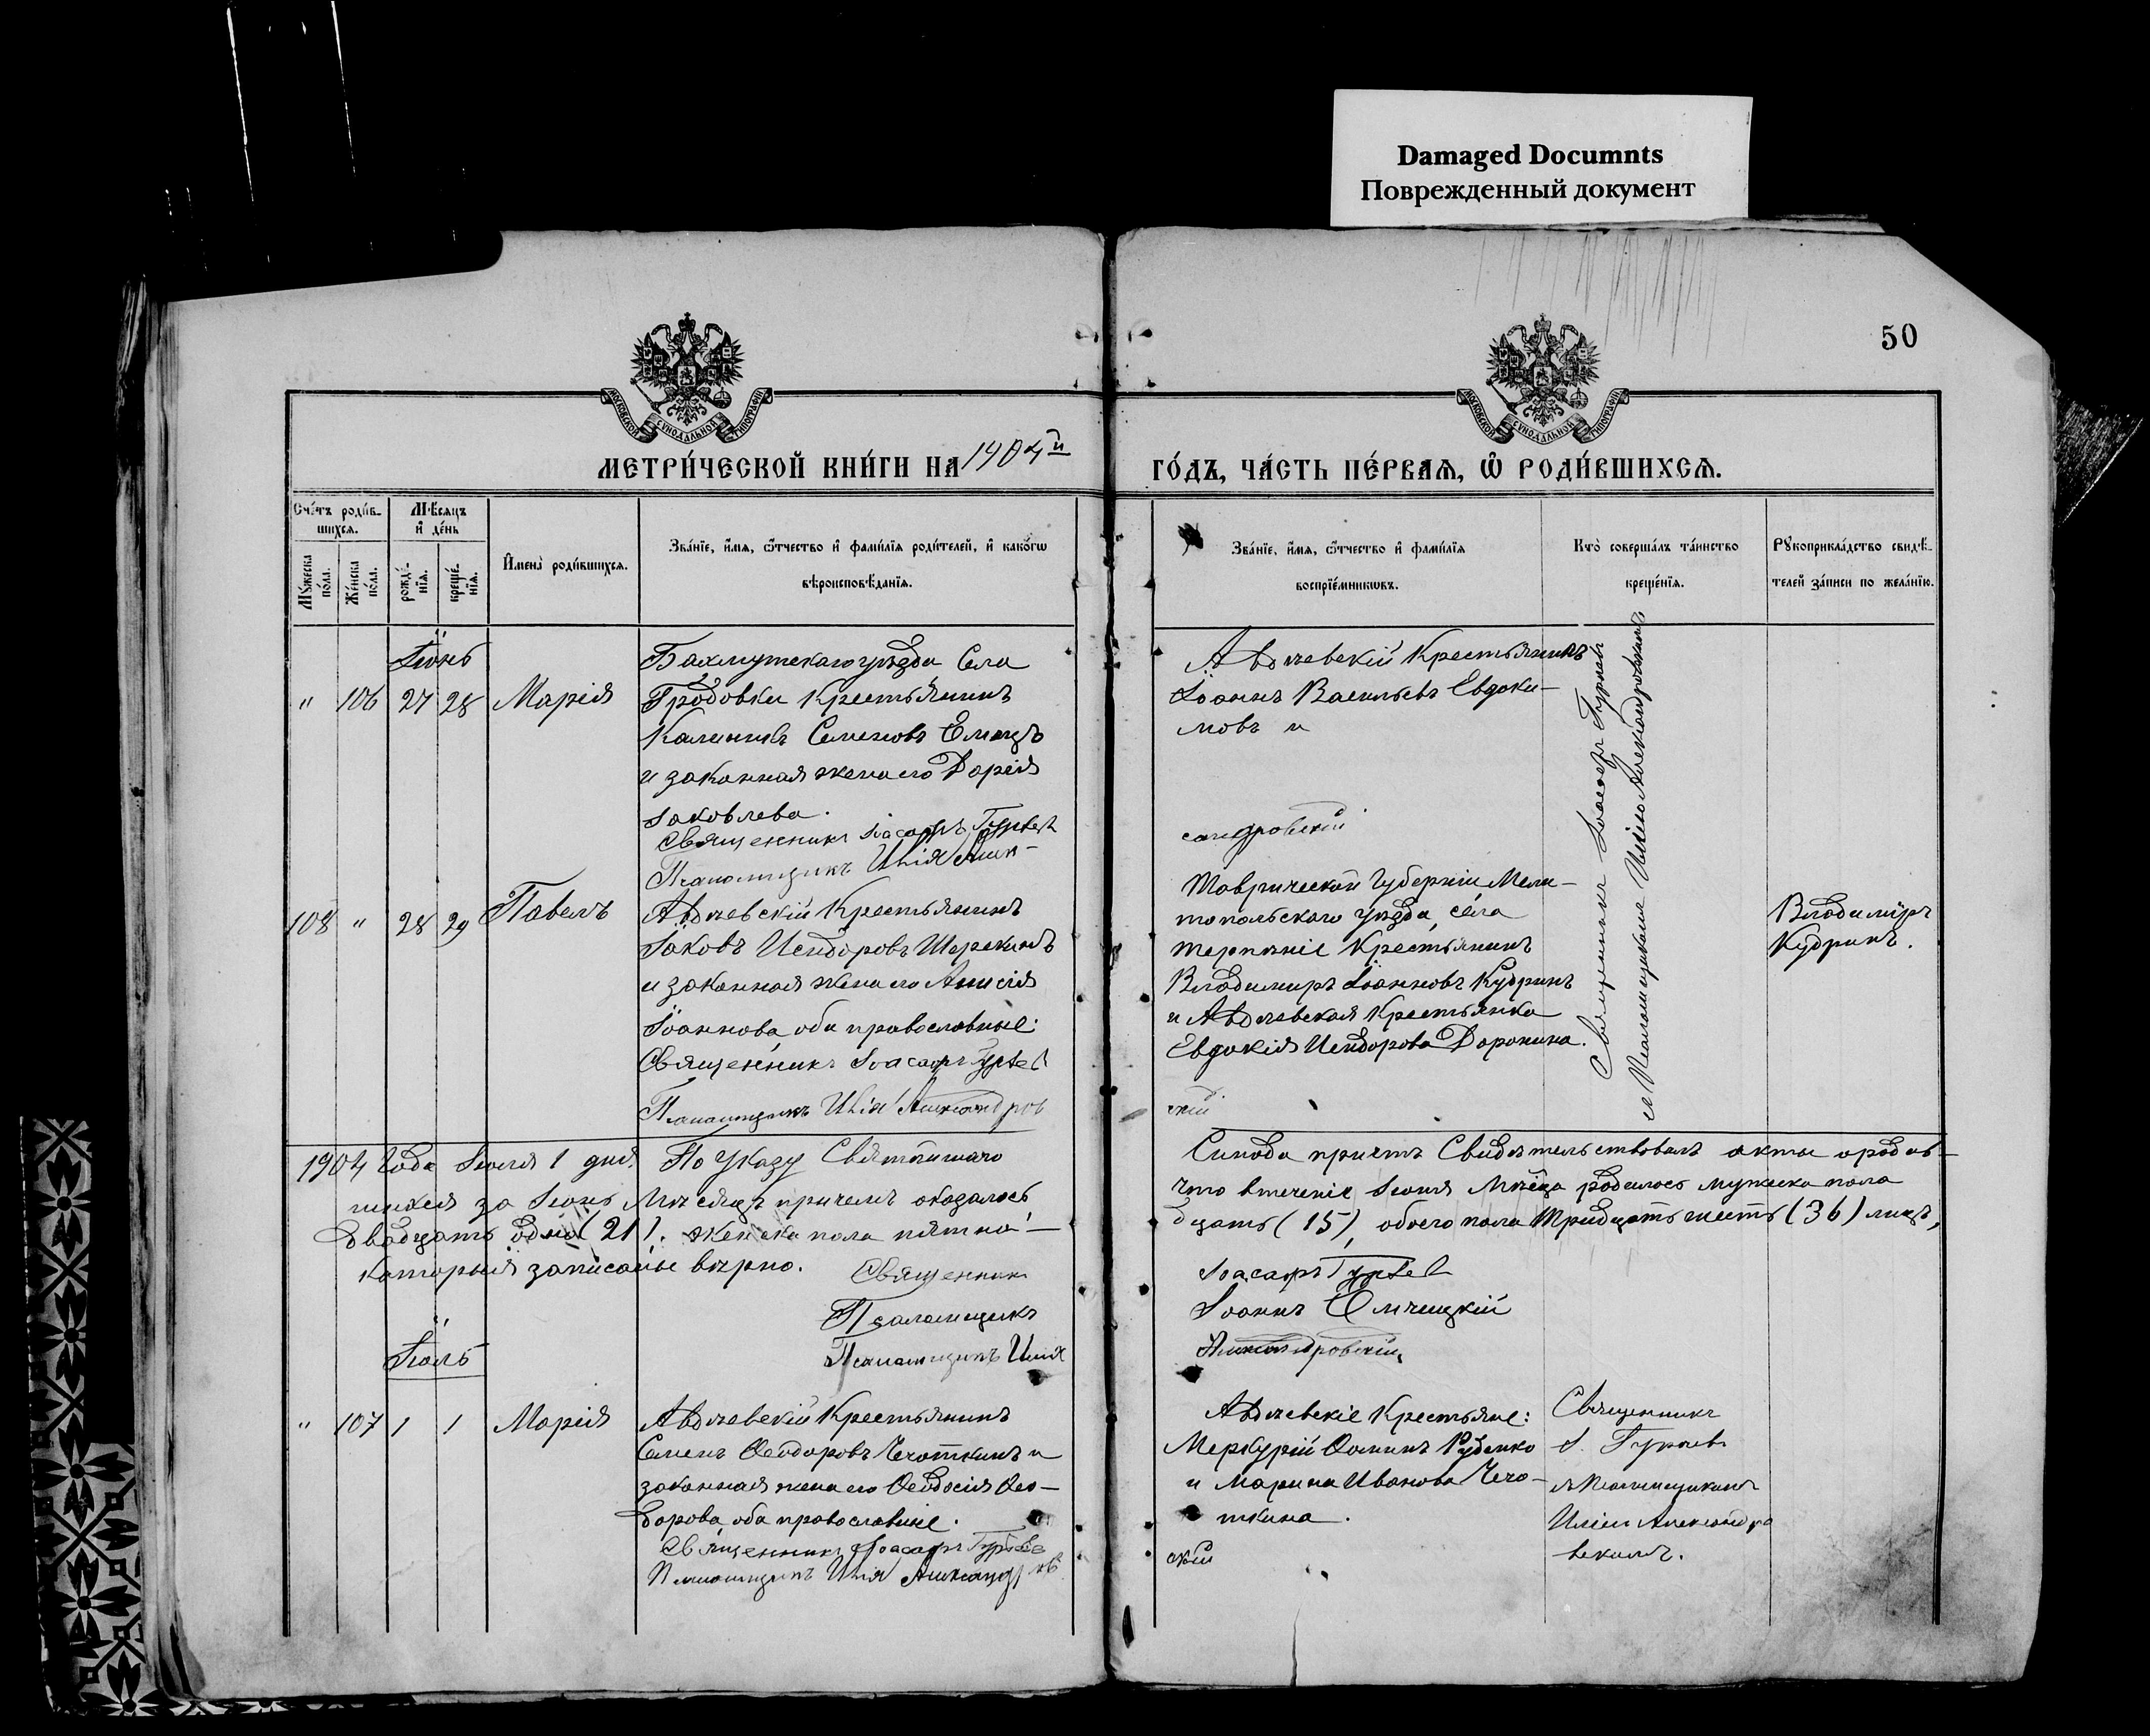 Damaged Documnts
Поврежденный документ
50
МОСКОВСКОЙ СУНОДАЛЬНОЙ ТИПОГРАФІИ
МОСКОВСКОЙ СУНОДАЛЬНОЙ ТИПОГРАФІИ
МЕТРИ́ЧЕСКОЙ КНИ́ГИ НА 1904й
ГО́ДЪ, ЧА́СТЬ ПЕ́РВАѦ, Ѡ РОДИ́ВШИХСѦ.
Сче́тъ роди́в-
шихсѧ.
Мꙋжеска по́ла.
Же́нска по́ла.
М́ѣсѧцъ
и де́нь
рожде́-
нїѧ.
креще́-
нїѧ.
И́мена̀ роди́вшихсѧ.
Зва́нїе, и́мѧ, ѻ́тчество и фамн́лїѧ роди́телей, и како́гѡ
вѣроисповѣ́данїѧ.
Зва́нїе, и́мѧ, ѻ́тчество и фами́лїѧ
воспрїе́мникѡвъ.
Кто̀ соверша́лъ та́инство
креще́нїѧ.
Рꙋкоприкла́дство свидѣ́-
телей за́писи по жела́нїю.
Іюнь
" 106 27 28 Марія
Бахмутскаго уѣзда Села
Гродовки Крестьянинъ
Калинникъ Семеновъ Емецъ
и законная жена его Дарія
Іаковлева.
Священникъ Іоасафъ Гурьевъ
Псаломщикъ Илія Алек-
Авдѣевскій Крестьянинъ
Іоаннъ Васильевъ Евдоки-
мовъ и
сандровскій
Священникъ Іоасафъ Гурьевъ
съ Псаломщикомъ Иліею Александровскимъ
108 " 28 29 Павелъ
Авдѣевскій Крестьянинъ
Іаковъ Исидоровъ Шерекинъ
и законная жена его Анисія
Іоаннова, оба православные.
Священникъ Іоасафъ Гурьевъ
Псаломщикъ Илія Александров
Таврической Губерніи Мели-
топольскаго уѣзда, села
Терпѣніе Крестьянинъ
Владимиръ Іоанновъ Кудринъ
и Авдѣевская Крестьянка
Евдокія Исидорова Доронина.
скій
Владиміръ
Кудринъ.
1904 Года Іюля 1 дня. По Указу Святѣйшаго
Синода причтъ Свидѣтельствовалъ акты о родив-
шихся за Іюнь Мѣсяцъ причемъ оказалось
что втеченіе Іюня Мѣсяца родилось мужеска пола
двадцать одно (21). женска пола пятна-
дцать (15), обоего пола Тридцать шесть (36) лицъ,
которыя записаны вѣрно. Священникъ
Іоасафъ Гурьевъ
Псаломщикъ
Іоаннъ Омчицкій
Псаломщикъ Илія
Александровскій
Іюль
" 107 1 1 Марія
Авдѣевскій Крестьянинъ
Семенъ Ѳеодоровъ Чечоткинъ и
законная жена его Ѳеодосія Ѳео-
дорова, оба православные.
Священникъ Іоасафъ Гурьевъ
Псаломщикъ Илія Александров
Авдѣевскіе Крестьяне:
Меркурій Ѳоминъ Руденко
и Марина Иванова Чечо-
ткина.
скій
Священникъ
І. Гурьевъ
съ Псаломщикомъ
Иліею Александро
вскимъ.